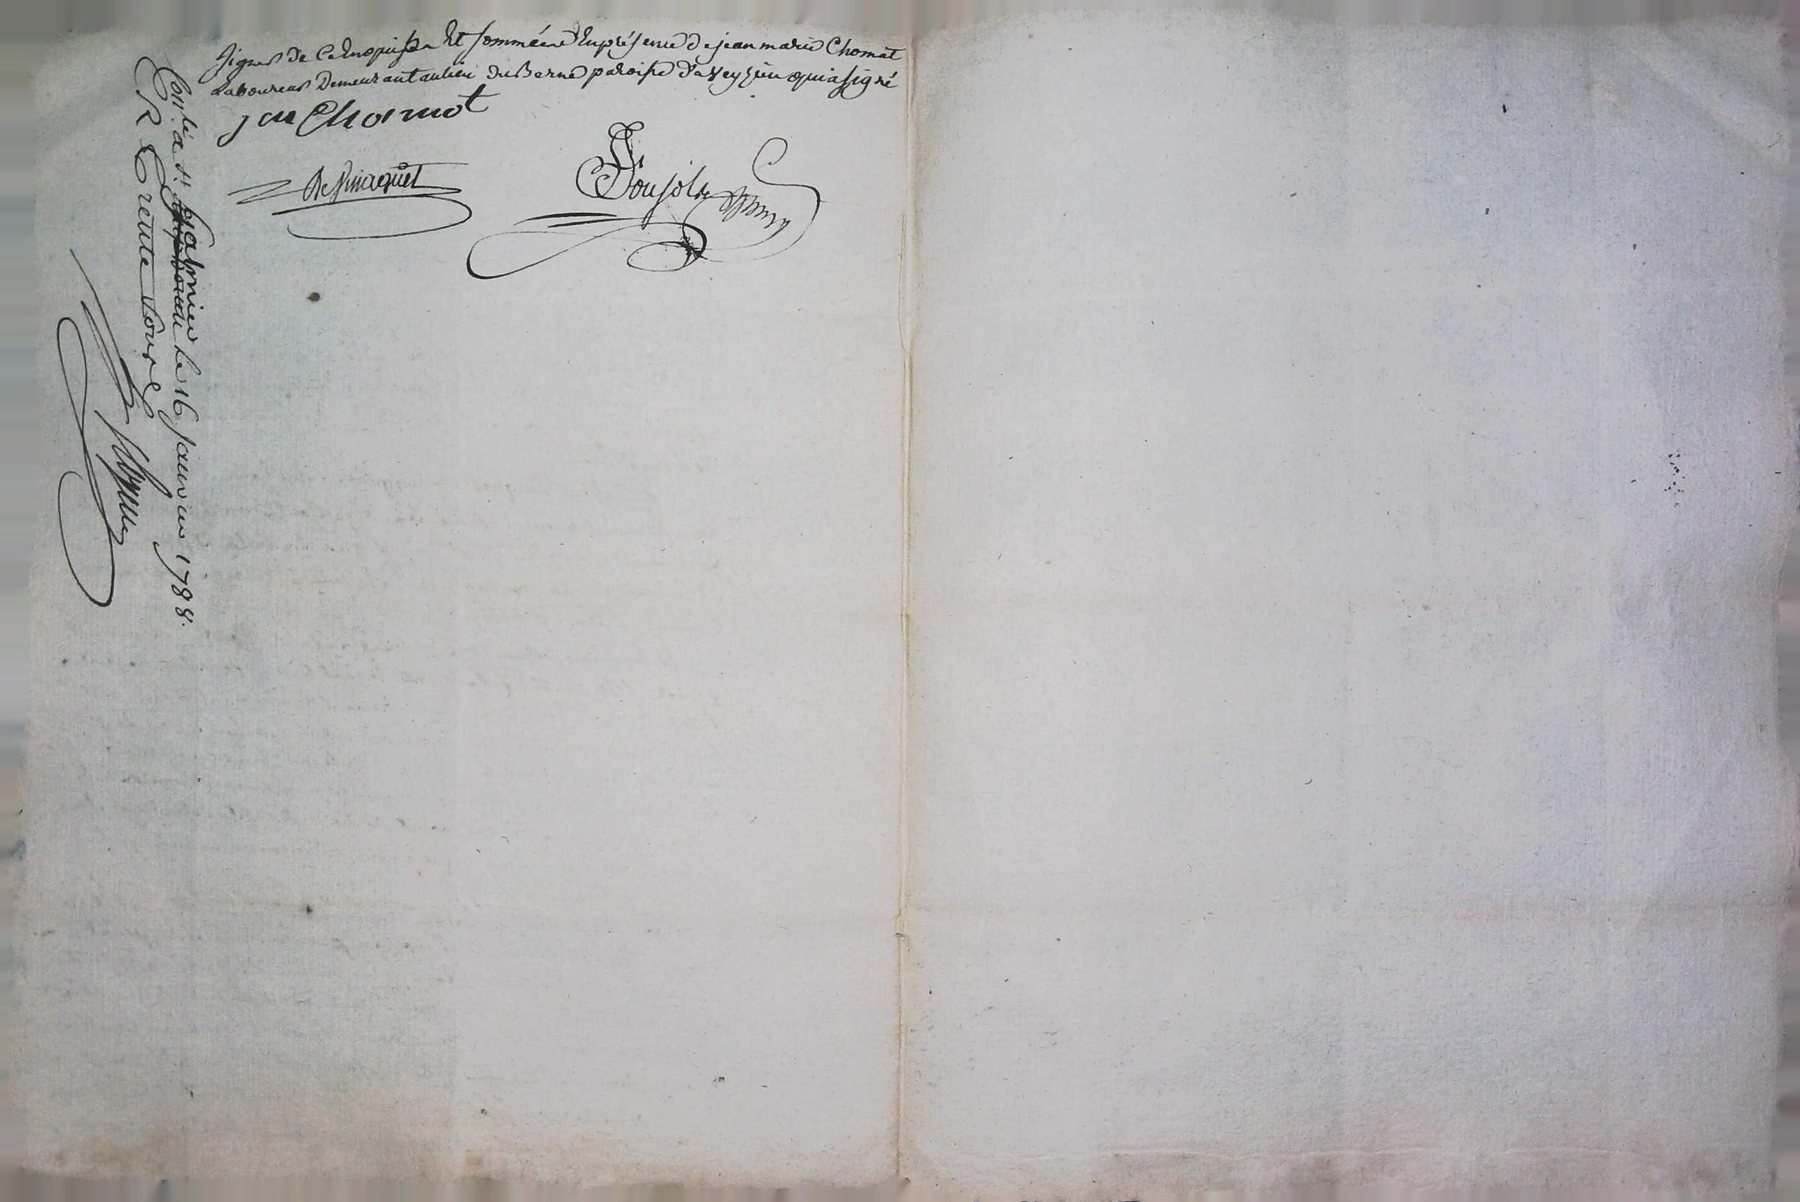 signer de ce Enquis Et sommé en presence de jean marie Chomat
Laboureur Demeurant au lieu du Berne paroisse d'aveyzieu qui a signé
jm Chomat
Poujol
Con.lé à St. galmier le 16 janvier 1788.
R Trente sous